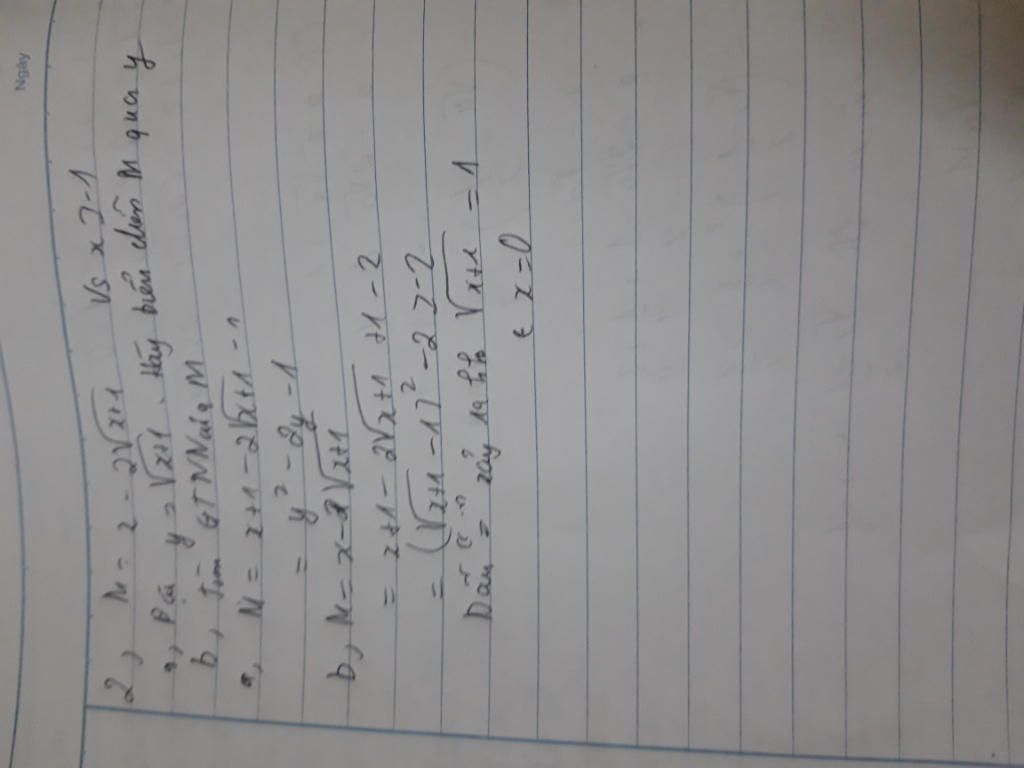 Ngày
2, M = x - 2√(x+1) Vs x ≥ -1
a, Đặt y = √(x+1). Hãy biểu diễn M qua y
b, Tìm GTNN của M
a, M = x+1 - 2√(x+1) - 1
= y² - 2y - 1
b, M = x - 2√(x+1)
= x+1 - 2√(x+1) + 1 - 2
= (√(x+1) - 1)² - 2 ≥ -2
Dấu "=" xảy ra khi √(x+1) = 1
x = 0